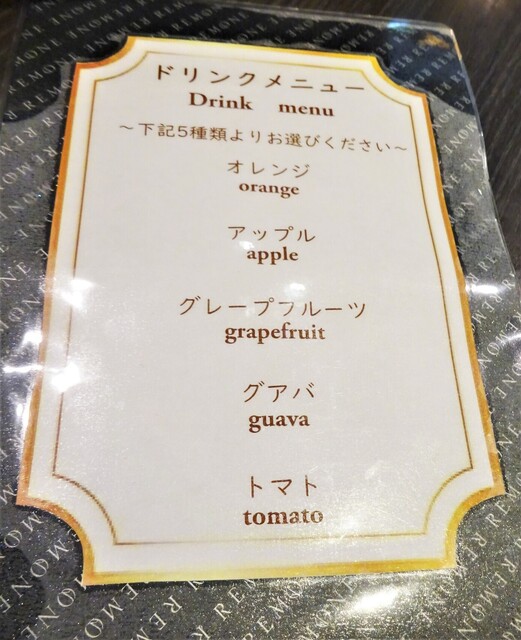 ドリンクメニュー
Drink menu
～下記5種類よりお選びください～
オレンジ
orange
アップル
apple
グレープフルーツ
grapefruit
グアバ
guava
トマト
tomato